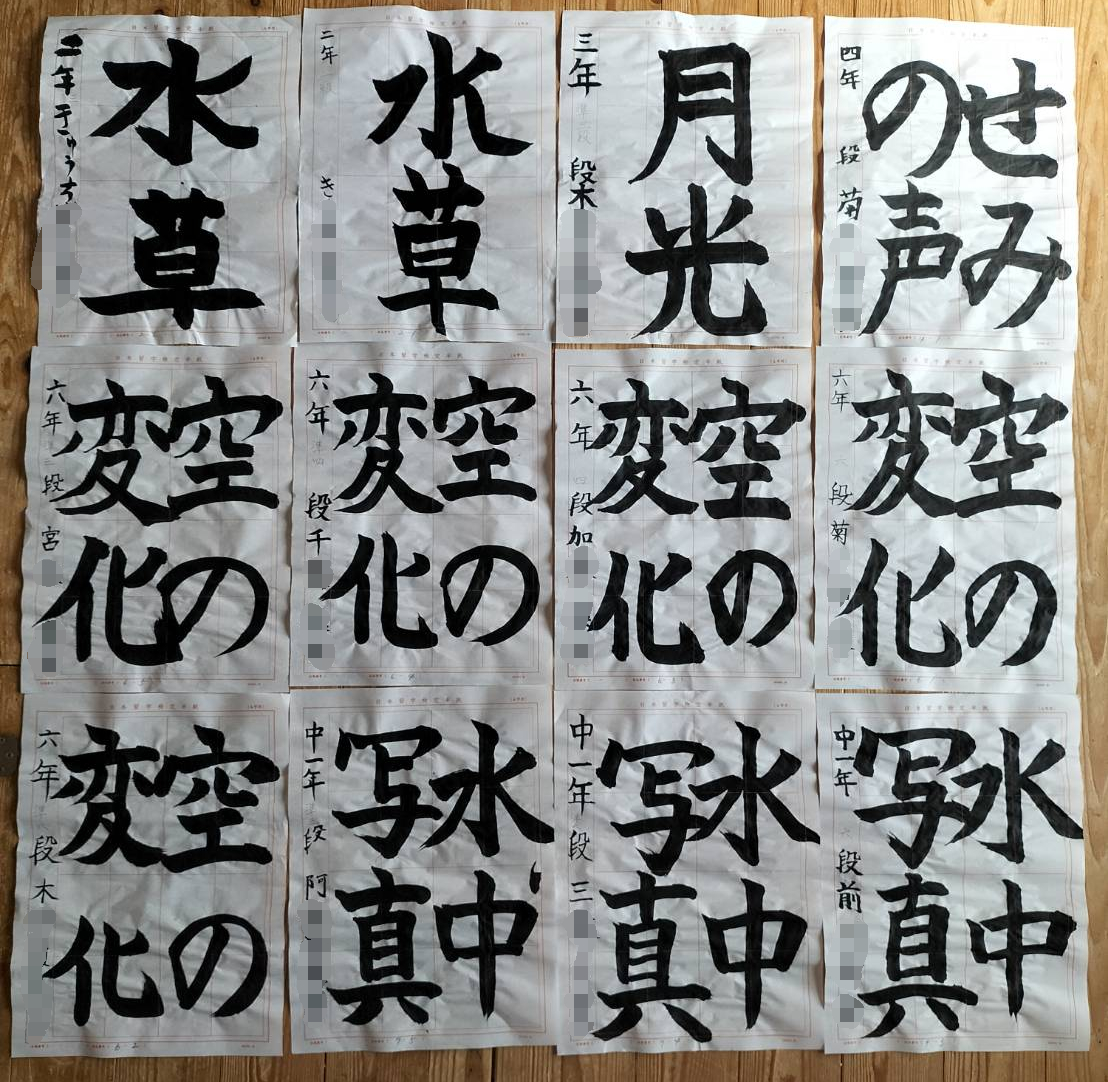 水草
二年
水草
二年
き
月光
三年
段
木
せみ
の声
四年
段
菊
空の
変化
六年
段
宮
空の
変化
六年
段
千
空の
変化
六年
四段
加
空の
変化
六年
段
菊
空の
変化
六年
段
木
水中
写真
中一年
段
阿
水中
写真
中一年
段
三
水中
写真
中一年
段
前